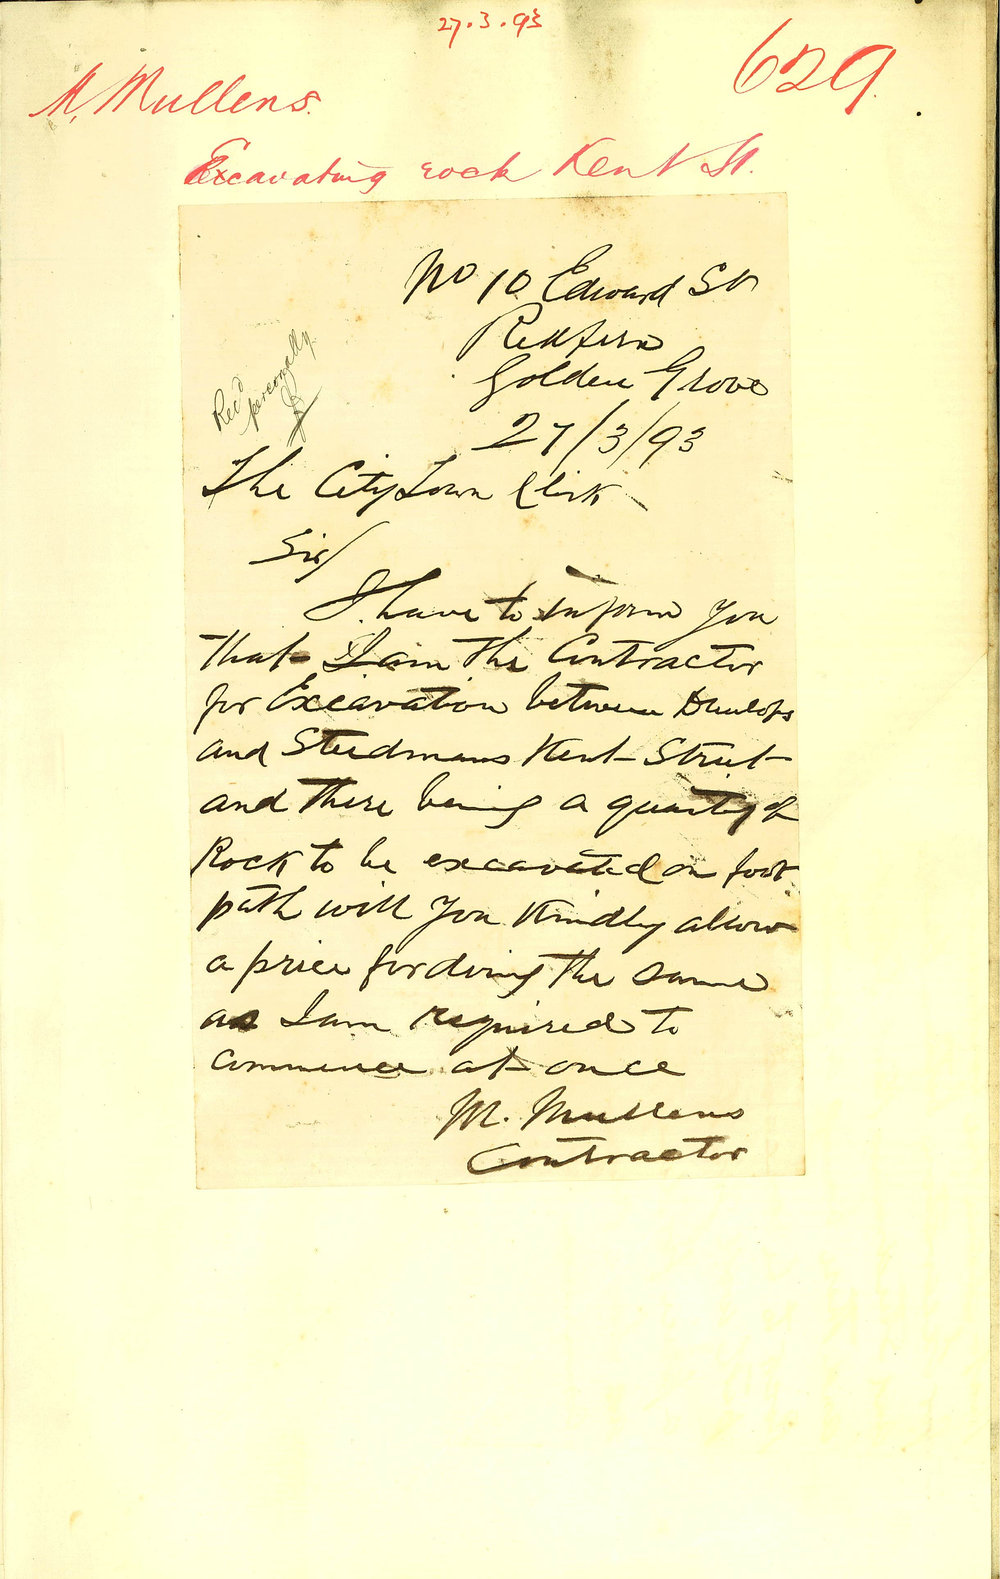 27.3.93
629
M. Mullens.
Excavating rock Kent St.
No 10 Edward St
Redfern
Golden Grove
27/3/93
Rec'd
personally
The City Town Clerk
Sir/
I have to inform you
that I am the Contractor
for Excavation between Dunlops
and Steedmans Kent Street
and there being a quantity of
Rock to be excavated on foot
path will you Kindly allow
a price for doing the same
as I am required to
commence at once
M. Mullens
Contractor